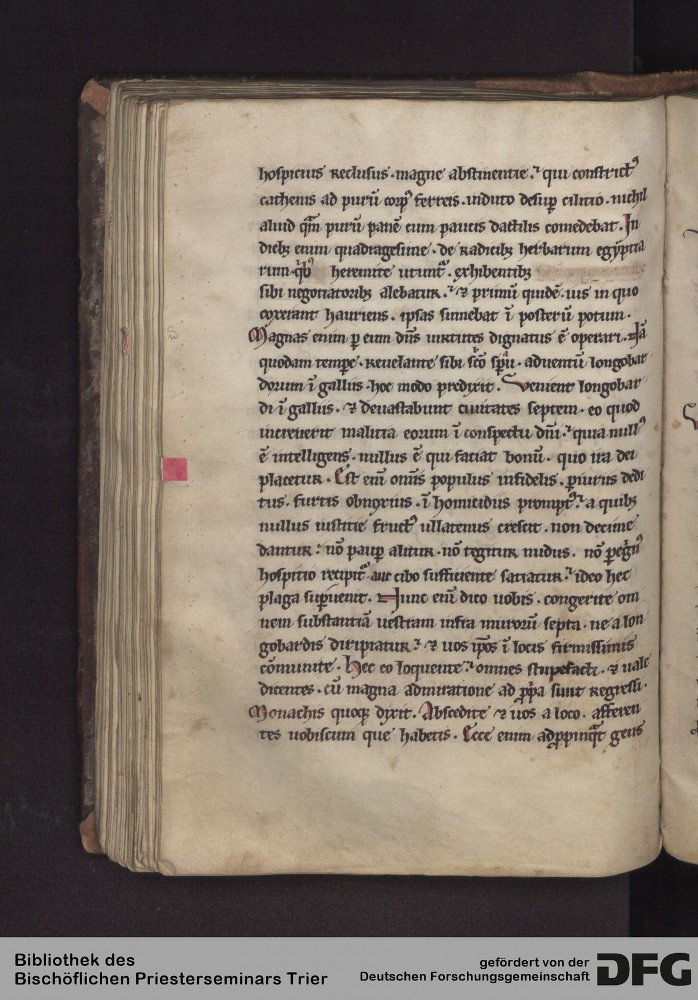 hospicius reclusus. magne abstinentie. qui constrict᷒
cathenis ad purū corp᷒ ferreis. induto desup cilitio. nichil
aliud qm̄ purū panē cum paucis dactilis comedebat. In
dieb; enim quadragesime. de radicib; herbarum egyptia
rum qͥb᷒ heremite utunt᷑. exhibentib;
sibi negotiatorib; alebatur. & primū quidē. ius in quo
coxerant hauriens. ipsas sumebat ī posterū potum.
Magnas enim p eum dn̄s uirtutes dignatus ē operari. Nā
quodam tempe. reuelante sibi sc̄o spū. aduentū longobar
dorum ī gallus. hoc modo predixit. Venient longobar
di ī gallus. & deuastabunt ciuitates septem. eo quod
increuerit malitia eorum ī conspectu dn̄i. quia null᷒
ē intelligens. nullus ē qui faciat bonū. quo ira dei
placetur. Est eni᷒ omīs populus infidelis. piurus dedi
tus. furtis obnoxius. ī homicidiis prompt᷒. a quib;
nullus iustitie fruct᷒ ullatenus crescit. non decime
dantur. nō paup alitur. nō tegitur nudus. nō pegn᷒
hospitio recipit᷑. aut cibo sufficiente satiatur. ideo hec
plaga supuenit. Nunc eni᷒ dico uobis. congerite om
nem substantiā uestram infra murorū septa. ne a lon
gobardis diripiatur. & uos ip̄os ī locis firmissimis
cōmunite. Hec eo loquente. omnes stupefacti. & uale
dicentes. cū magna admiratione ad pp̄a sunt regressi.
Monachis quoq; dixit. Abscedite & uos a loco. afferen
tes uobiscum que habetis. Ecce enim adppinqᷓt gens
Bibliothek des
Bischöflichen Priesterseminars Trier
gefördert von der
Deutschen Forschungsgemeinschaft
DFG